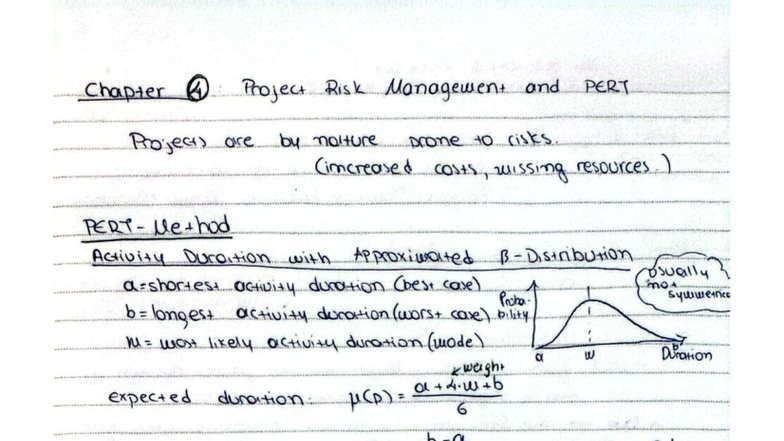 Chapter ④: Project Risk Management and PERT
Projects are by nature prone to risks.
(increased costs, missing resources.)
PERT-Method
Activity Duration with Approximated β-Distribution
a=shortest activity duration (best case)
b=longest activity duration (worst case)
m=most likely activity duration (mode)
Proba-
bility
usually
not
symmetric
a
m
b
Duration
weight
expected duration: μ(p) = (a+4·m+b)/6
b-a